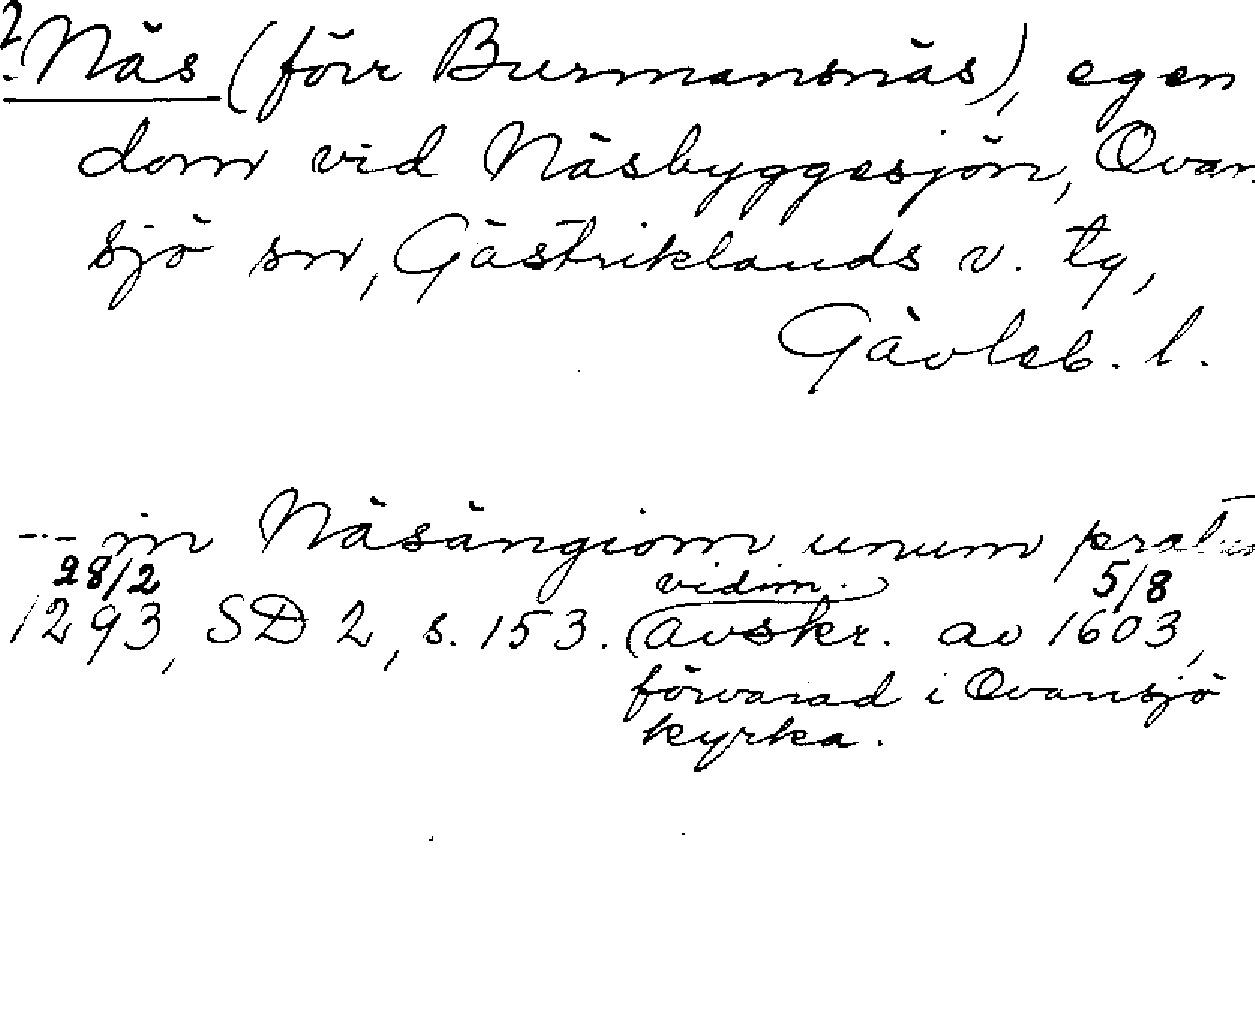 ? Näs (förr Burmansnäs), egen
dom vid Näsbyggesjön, Ovan
sjö sn, Gästriklands v. tg,
Gävleb. l.
--- in Näsängiom unum pratum
28/2 vidim. 5/8
1293, SD 2, s. 153. (avskr. av 1603,
förvarad i Ovansjö
kyrka.